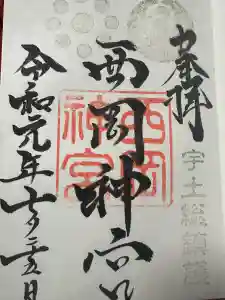 奉拝
宇土総鎮護
西岡神宮
西岡神宮
令和元年十月二十五日